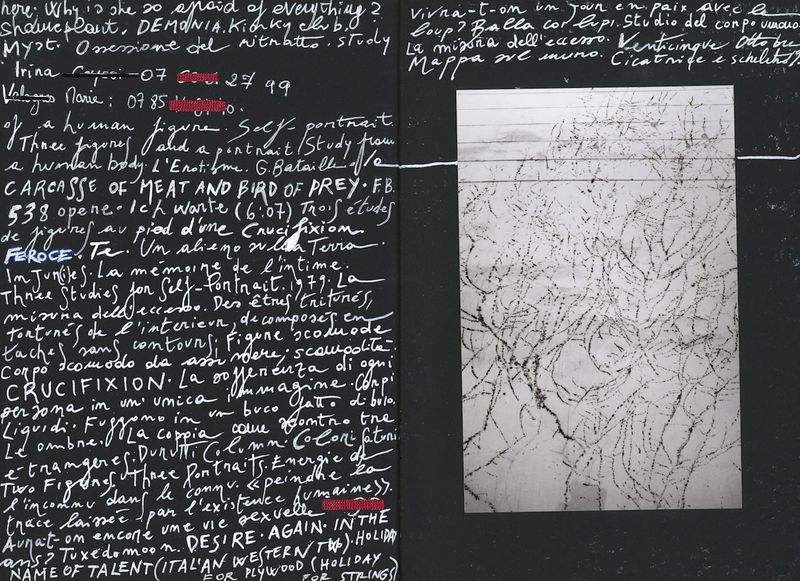 here. Why is she so afraid of everything?
Showerplant. DEMONIA. Kinky club.
Myst. Ossessione del ritratto. Study
Irina 07 27 99
Marie: 07 85
of a human figure. Self-portrait
Three figures and a portrait. Study from
a human body. L'Erotisme. G. Bataille
CARCASSE OF MEAT AND BIRD OF PREY. F.B.
538 opere. Ich Warte (6:07) Trois études
de figures au pied d'une Crucifixion
FEROCE. Te. Un alieno sulla Terra.
La mémoire de l'intime.
Three Studies for Self-Portrait. 1979. La
misura dell'eccesso. Des êtres triturés,
torturés de l'intérieur, décomposés en
taches sans contours. Figure scomode
Corpo scomodo da assumere. scomodità.
CRUCIFIXION. La sofferenza di ogni
persona in un'unica immagine. Corpi
liquidi. Fuggono in un buco fatto di buio.
Le ombre. La coppia come scontro tra
étrangères. Durutti Column. Colori saturi
Two Figures. Three Portraits. Energie de
l'inconnu dans le connu. «peindre la
trace laissée par l'existence humaine».
Aurait-on encore une vie sexuelle
ans? Tuxedomoon. DESIRE. AGAIN. IN THE
NAME OF TALENT (ITALIAN WESTERN TWO). HOLIDAY
FOR PLYWOOD (HOLIDAY FOR STRINGS)
vivra-t-on un jour en paix, avec le
loup? Balla coi lupi. Studio del corpo umano.
La misura dell'eccesso. Venticinque Ottobre
Mappa sul muro. Cicatrice e scheletro?